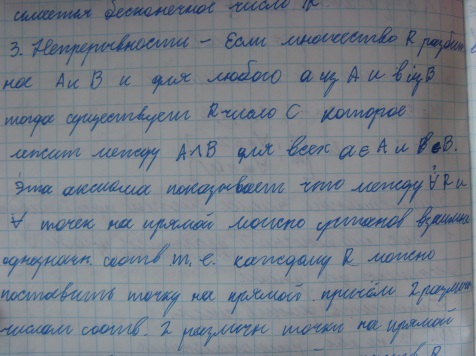 бесконечное число R
3. Непрерывности – Если множество R разбит
на A и B и для любого a из A и b из B
тогда существует R число C которое
лежит между A∧B для всех a∈A и b∈B.
Эта аксиома показывает что между ∀ R и
∀ точек на прямой можно установ взаимно
однозначн. соотв. т. е. каждому R можно
поставить точку на прямой причём 2 различн
числам соотв. 2 различн точки на прямой